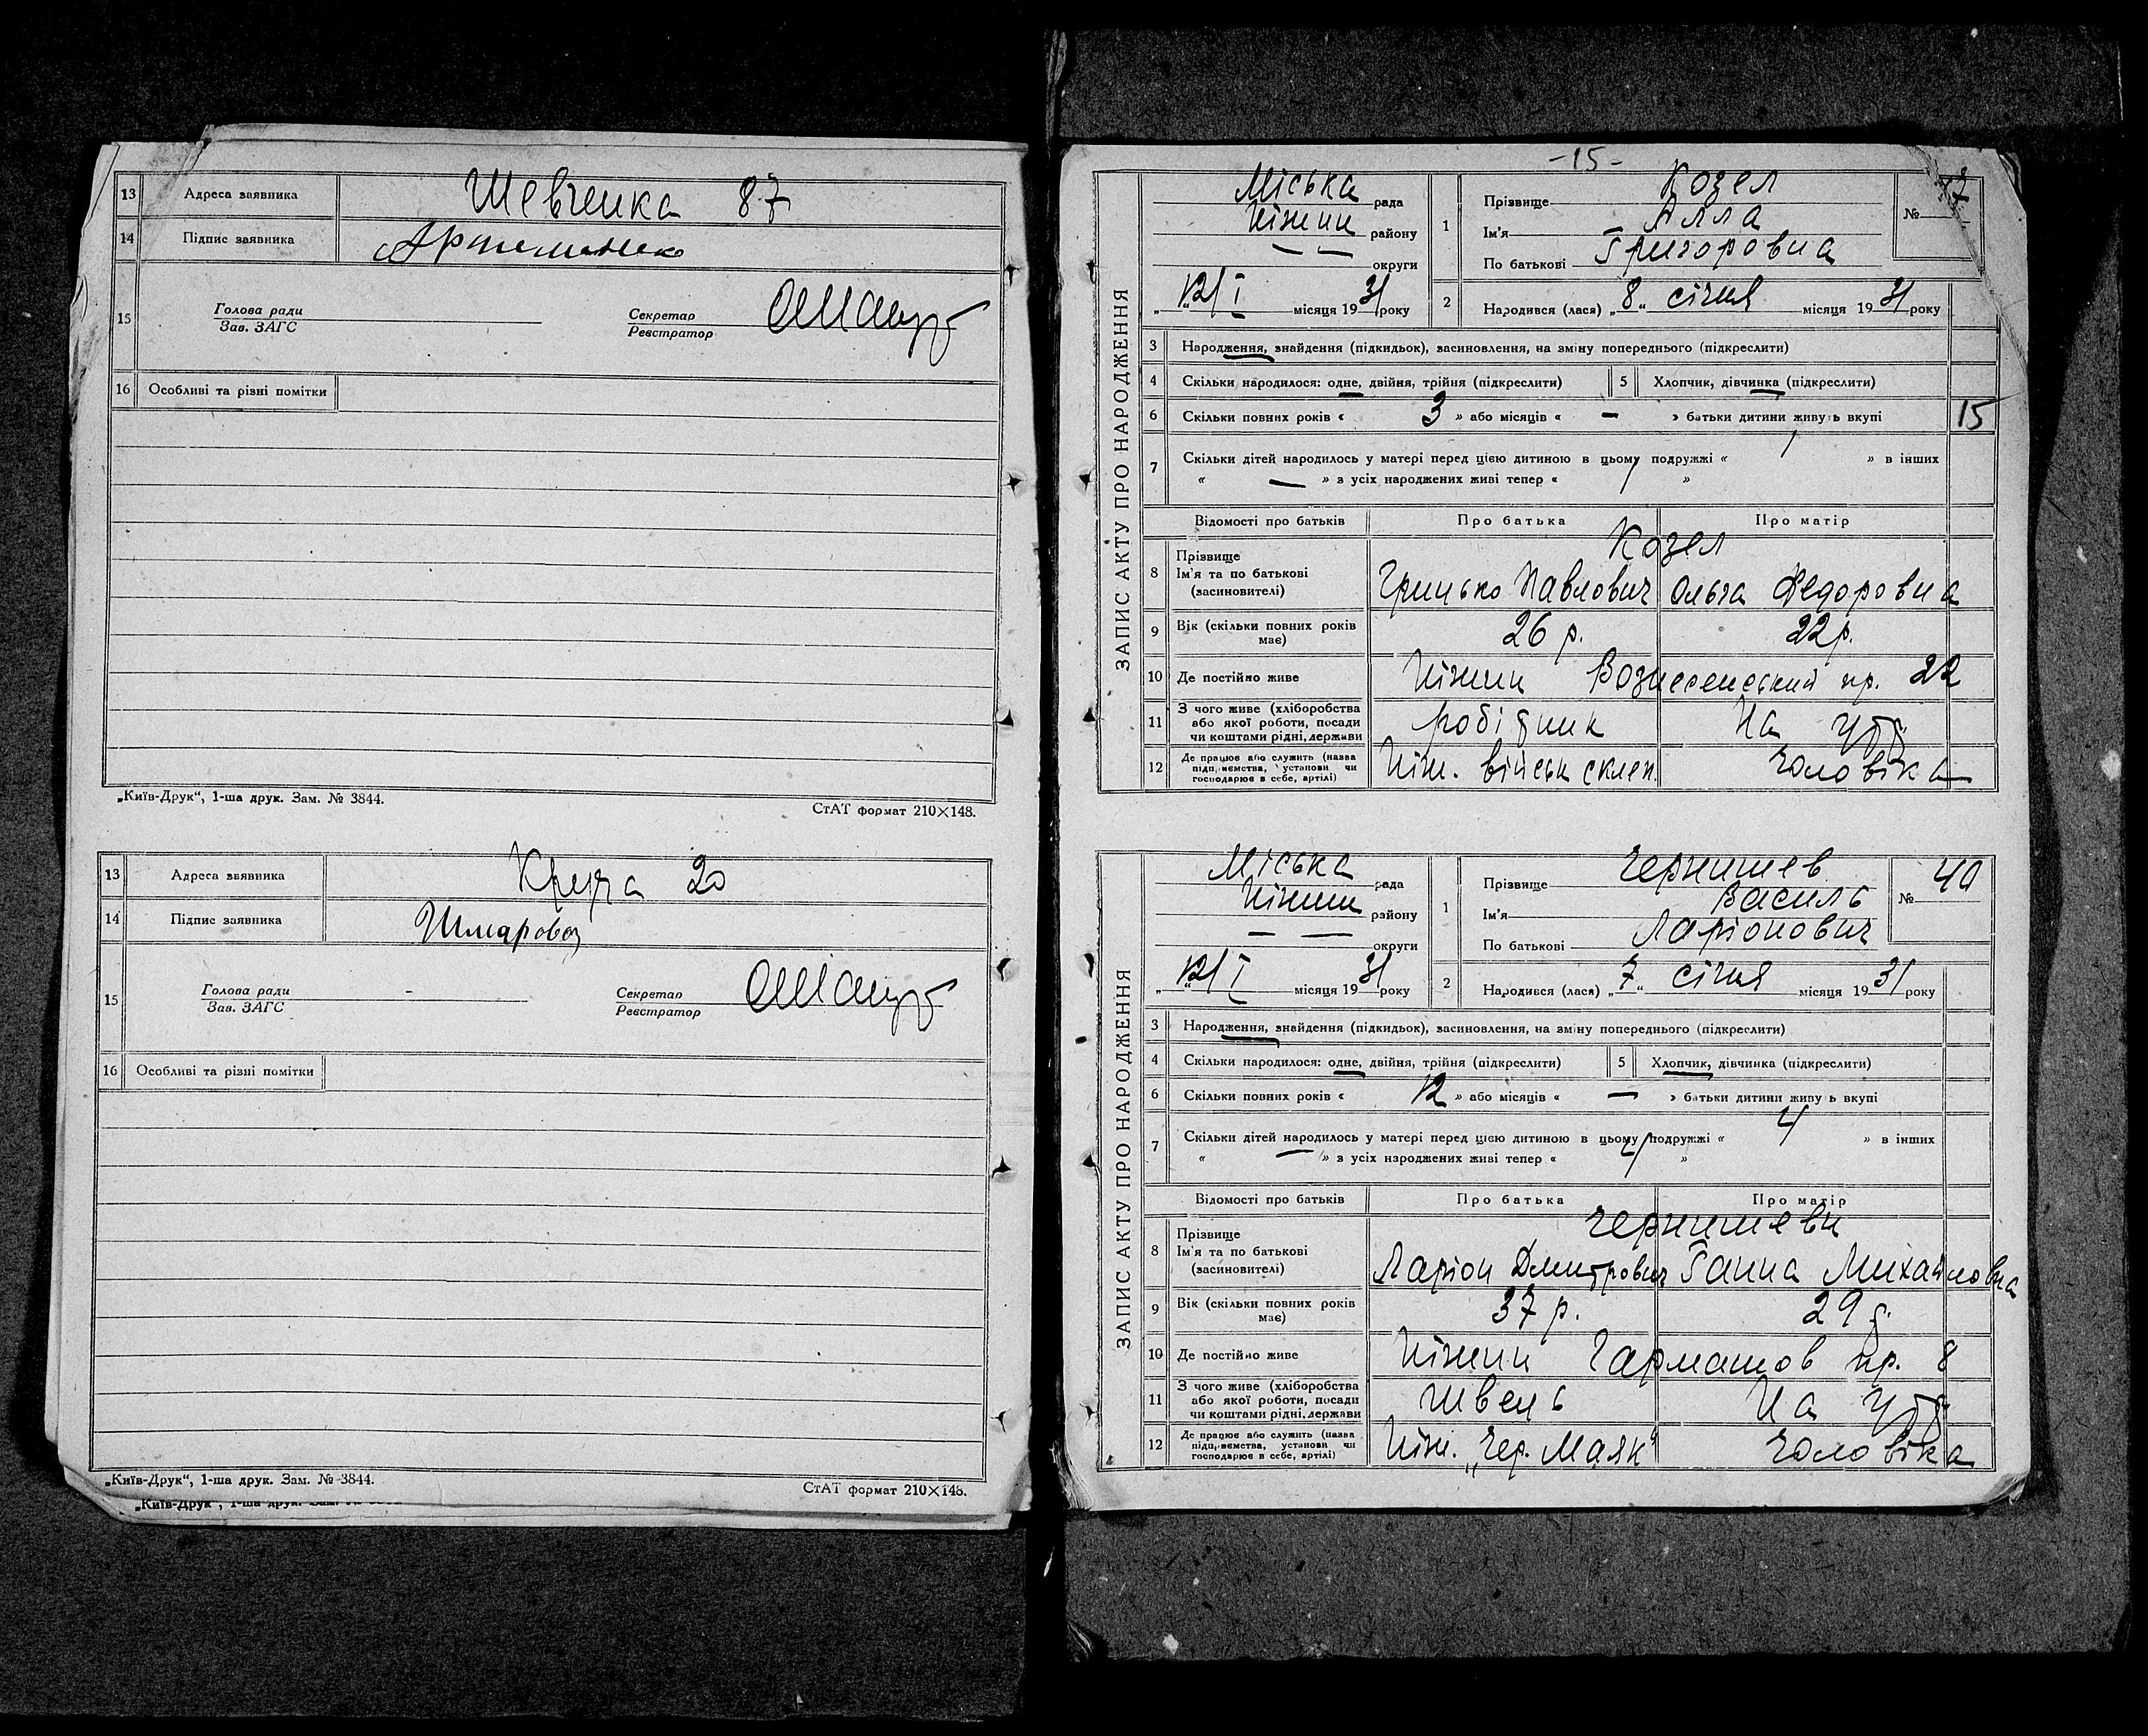 13 Адреса заявника Шевченка 87
14 Підпис заявника Артеменко
15 Голова ради
Зав. ЗАГС
Секретар
Реєстратор
16 Особливі та різні помітки
„Київ-Друк“, 1-ша друк. Зам. № 3844.
СтАТ формат 210×148.
13 Адреса заявника 20
14 Підпис заявника
15 Голова ради
Зав. ЗАГС
Секретар
Реєстратор
16 Особливі та різні помітки
„Київ-Друк“, 1-ша друк. Зам. № 3844.
СтАТ формат 210×148.
-15-
ЗАПИС АКТУ ПРО НАРОДЖЕННЯ
Міська рада
Ніжин району
— — округи
„12/I місяця 1931 року
1 Прізвище Козел
Ім'я Алла
По батькові Григоровна
№
2 Народився (лася) „8“ січня місяця 1931 року
3 Народження, знайдення (підкидьок), засиновлення, на зміну попереднього (підкреслити)
4 Скільки народилося: одне, двійня, трійня (підкреслити) 5 Хлопчик, дівчинка (підкреслити)
6 Скільки повних років « 3 » або місяців « — » батьки дитини живуть вкупі
15
7 Скільки дітей народилось у матері перед цією дитиною в цьому подружжі « 1 » в інших
« — » з усіх народжених живі тепер « 1 »
Відомості про батьків Про батька Про матір
8 Прізвище Козел
Ім'я та по батькові Грицько Павлович Ольга Федоровна
(засиновителі)
9 Вік (скільки повних років має) 26 р. 22 р.
10 Де постійно живе Ніжин Вознесенський пр. 22
11 З чого живе (хліборобства або якої роботи, посади чи коштами рідні, держави робітник На утр.
12 Де працює або служить (назва підприємства, установи чи господарює в себе, артілі) Ніж. військ склеп. чоловіка
ЗАПИС АКТУ ПРО НАРОДЖЕННЯ
Міська рада
Ніжин району
— — округи
„12/I місяця 1931 року
1 Прізвище Чернишев
Ім'я Василь
По батькові Ларіонович
№ 40
2 Народився (лася) „7“ січня місяця 1931 року
3 Народження, знайдення (підкидьок), засиновлення, на зміну попереднього (підкреслити)
4 Скільки народилося: одне, двійня, трійня (підкреслити) 5 Хлопчик, дівчинка (підкреслити)
6 Скільки повних років « 12 » або місяців « — » батьки дитини живуть вкупі
7 Скільки дітей народилось у матері перед цією дитиною в цьому подружжі « 4 » в інших
« — » з усіх народжених живі тепер « 4 »
Відомості про батьків Про батька Про матір
8 Прізвище Чернишеви
Ім'я та по батькові Ларіон Дмитрович Ганна Михайловна
(засиновителі)
9 Вік (скільки повних років має) 37 р. 29 р.
10 Де постійно живе Ніжин Гармашов пр. 8
11 З чого живе (хліборобства або якої роботи, посади чи коштами рідні, держави Швець На утр.
12 Де працює або служить (назва підприємства, установи чи господарює в себе, артілі) Ніж. „Чер. Маяк“ чоловіка